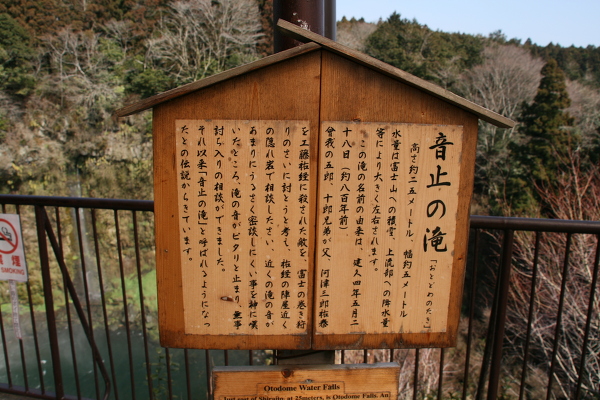 音止の滝
「おとどめのたき」
高さ約二五メートル、幅約五メートル
水量は富士山への積雪、上流部への降水量
等により大きく左右されます。
この滝の名前の由来は、建久四年五月二
十八日（約八百年前）
曽我の五郎、十郎兄弟が父、河津三郎祐泰
を工藤祐経に殺された敵を、富士の巻き狩
りのさいに討とうと考え、祐経の陣屋近く
の隠れ岩で相談したさい、近くの滝の音が
あまりにうるさく密談しにくい事を神に嘆
いたところ、滝の音がピタリと止まり、無事
討ち入りの相談ができました。
それ以来「音止の滝」と呼ばれるようになっ
たとの伝説からきています。
Otodome Water Falls
Just east of Shiraito, at 25meters, is Otodome Falls. An
SMOKING